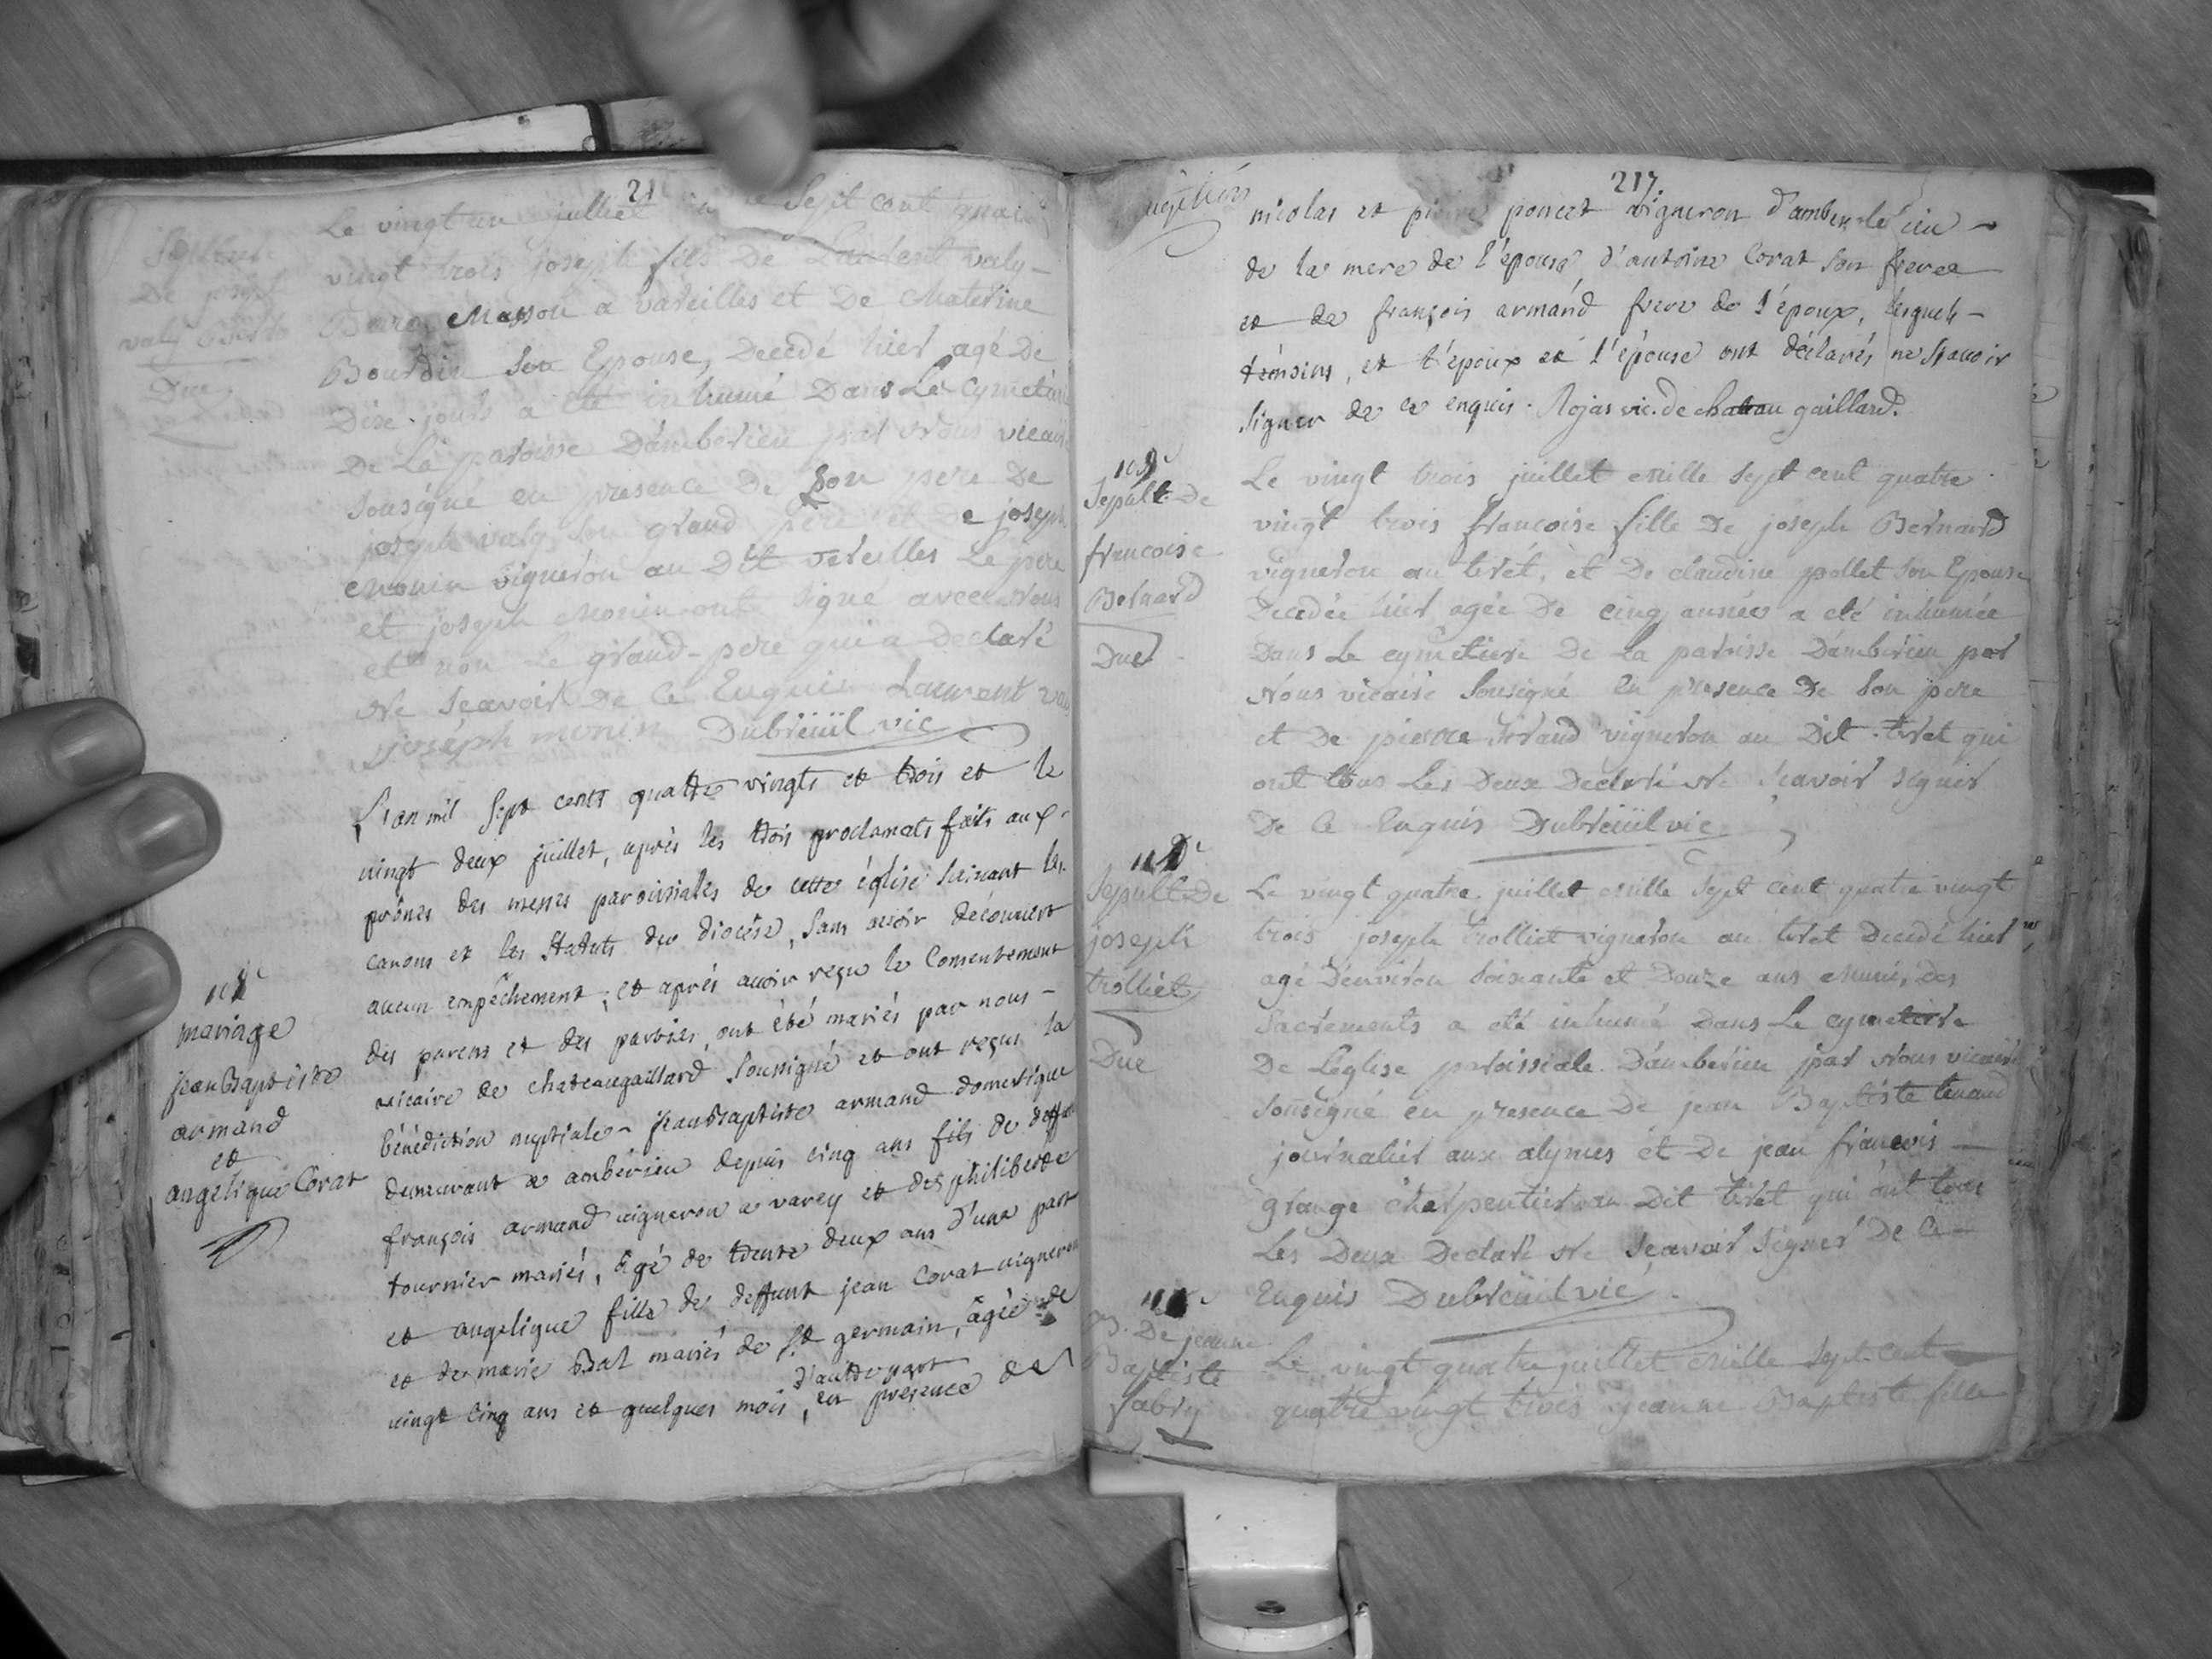 21
Sepulture
De joseph
valy
Due
Le vingt un juillet sept cent quatre
vingt trois joseph fils De Laurent valy
Masson a vareilles et De Materine
Bourdin son Epouse, Decedé hier agé De
Dixe jours a eté inhumé Dans Le Cymetiere
De La paroisse D'amberieu par Nous vicaire
sousigné en presence De son pere De
joseph valy son grand pere et De joseph
monin vigneron au Dit vereilles Le pere
et joseph Monin ont signé avec Nous
et non Le grand-pere qui a Declaré
Ne Scavoir De Ce Enquis Laurent valy
joseph monin Dubreüil vic
mariage
jean Baptiste
armand
et
angelique Corat
L'an mil sept cents quattre vingts et trois et le
vingt deux juillet, après les trois proclamats faits aux
prônes des messes paroissiales de cette église suivant les
canons et les statuts du diocèse, sans avoir découvert
aucun empêchement, et aprés avoir reçu le consentement
des parens et des parties, ont été mariés par nous -
vicaire de chateaugaillard soussigné et ont reçus la
bénédiction nuptiale - jean Baptiste armand domestique
demeurant a ambérieu depuis cinq ans fils de deffunt
françois armand vigneron a varey et de philiberte
tournier mariés, âgé de trente deux ans d'une part
et angelique fille de deffunt jean Corat vigneron
et de marie Bal mariés de St germain, âgée de
d'autre part
vingt cinq ans et quelques mois, en présence de
217
nicolas et pierre poncet vigneron d'amberieu -
de la mere de l'épouse d'antoine Corat son frere
et de françois armand frere de l'époux, lesquels -
témoins, et l'époux et l'épouse ont déclarés ne scavoir
signer de ce enquis. Rojas vic. de chateau gaillard.
Sepult De
francoise
Bernard
Due
Le vingt trois juillet mille sept cent quatre
vingt trois francoise fille De joseph Bernard
vigneron au tiret, et De claudine pollet son Epouse
Decedée hier agée De cinq années a eté inhumée
Dans Le cymetiere De La paroisse D'amberieu par
Nous vicaire sousigné En presence De son pere
et De pierre vigneron au Dit tiret qui
ont tous Les Deux Declaré Ne Scavoir signer
De Ce Enquis Dubreüil vic
Sepult De
joseph
trolliet
Due
Le vingt quatre juillet mille sept cent quatre vingt
trois joseph trolliet vigneron au tiret Decedé hier
agé D'environ soixante et Douze ans muni des
sacrements a eté inhumé Dans Le cymetiere
De L'eglise paroissiale D'amberieu par Nous vicaire
sousigné en presence De jean Baptiste tenand
journalier aux alymes et De jean francois -
grange charpentier au Dit tiret qui ont tous
Les Deux Declaré Ne Scavoir signer De Ce -
Enquis Dubreüil vic
B. De jeanne
Baptiste
fabry
Le vingt quatre juillet mille sept cent
quatre vingt trois jeanne Baptist fille